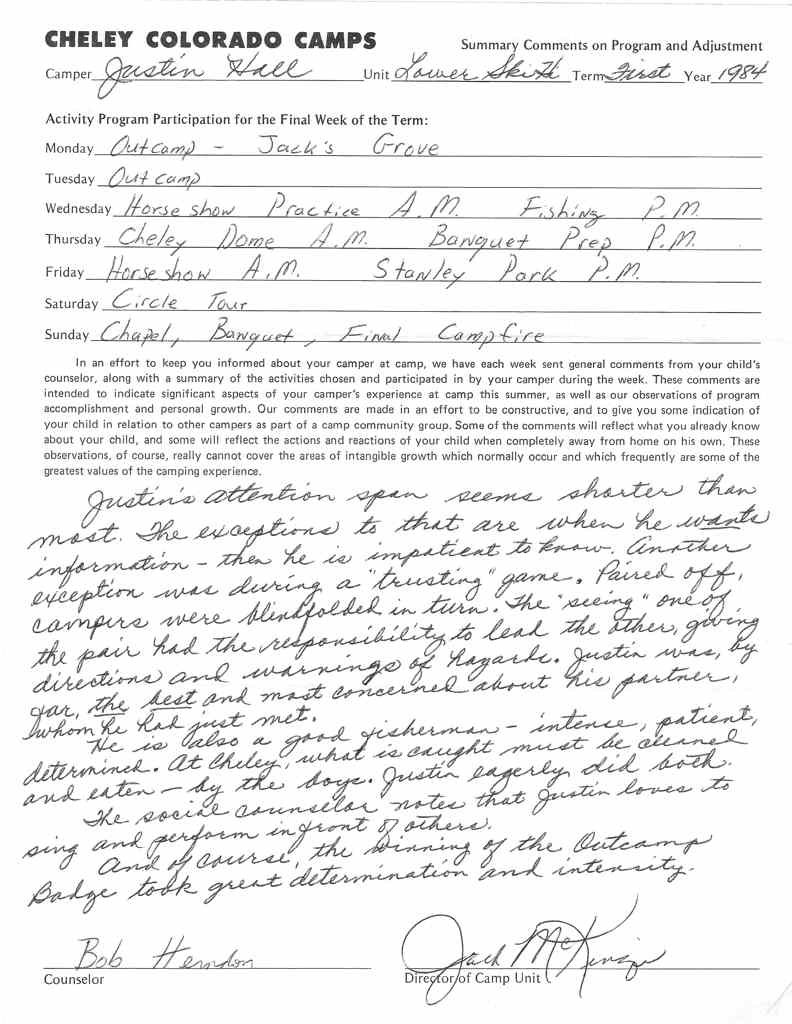 CHELEY COLORADO CAMPS
Summary Comments on Program and Adjustment
Camper Justin Hall Unit Lower Ski Hi Term First Year 1984
Activity Program Participation for the Final Week of the Term:
Monday Outcamp - Jack's Grove
Tuesday Outcamp
Wednesday Horse show Practice A.M. Fishing P.M.
Thursday Cheley Dome A.M. Banquet Prep P.M.
Friday Horse show A.M. Stanley Park P.M.
Saturday Circle Tour
Sunday Chapel, Banquet, Final Campfire
In an effort to keep you informed about your camper at camp, we have each week sent general comments from your child's
counselor, along with a summary of the activities chosen and participated in by your camper during the week. These comments are
intended to indicate significant aspects of your camper's experience at camp this summer, as well as our observations of program
accomplishment and personal growth. Our comments are made in an effort to be constructive, and to give you some indication of
your child in relation to other campers as part of a camp community group. Some of the comments will reflect what you already know
about your child, and some will reflect the actions and reactions of your child when completely away from home on his own. These
observations, of course, really cannot cover the areas of intangible growth which normally occur and which frequently are some of the
greatest values of the camping experience.
Justin's attention span seems shorter than
most. The exceptions to that are when he wants
information - then he is impatient to know. Another
exception was during a "trusting" game. Paired off,
campers were blindfolded in turn. The "seeing" one of
the pair had the responsibility to lead the other, giving
directions and warnings of hazards. Justin was, by
far, the best and most concerned about his partner,
whom he had just met.
He is also a good fisherman - intense, patient,
determined. At Cheley, what is caught must be cleaned
and eaten - by the boys. Justin eagerly did both.
The social counselor notes that Justin loves to
sing and perform in front of others.
And of course, the winning of the Outcamp
Badge took great determination and intensity.
Bob Herndon
Jack McKinzie
Counselor
Director of Camp Unit